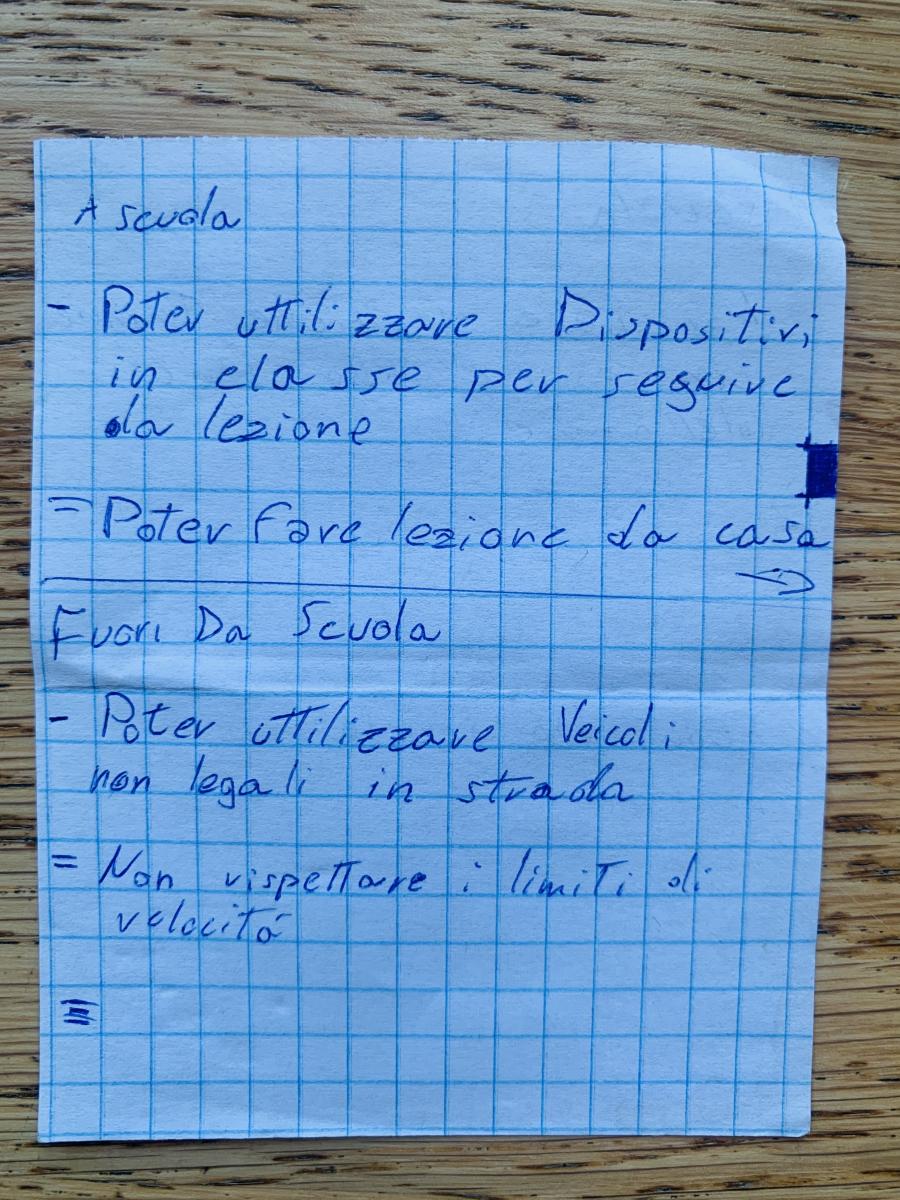 A scuola
- Poter uttilizzare Dispositivi
in classe per seguire
la lezione
= Poter fare lezione da casa
→
Fuori Da Scuola
- Poter uttilizzare Veicoli
non legali in strada
= Non rispettare i limiti di
velocitá
≡